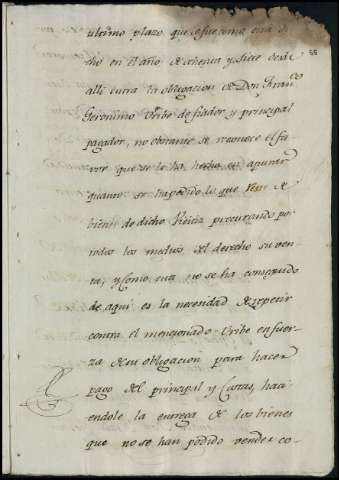 55
ultimo plazo que se
cho en el año de ochenta y siete desde
alli corra la obligacion de Don Franco
Geronimo Uribe de fiador y principal
pagador, no obstante se reconoce el fa-
vor que se le ha hecho en apurar
quanto se ha podido lo que de
bienes de dicho procurando por
todos los medios del derecho su ven-
ta, y como esta no se ha conseguido
de aqui es la necesidad de repetir
contra el mencionado Uribe en fuer-
za de su obligacion para hacer
pago del principal y Costas, haci-
endole la entrega de los bienes
que no se han podido vender co-